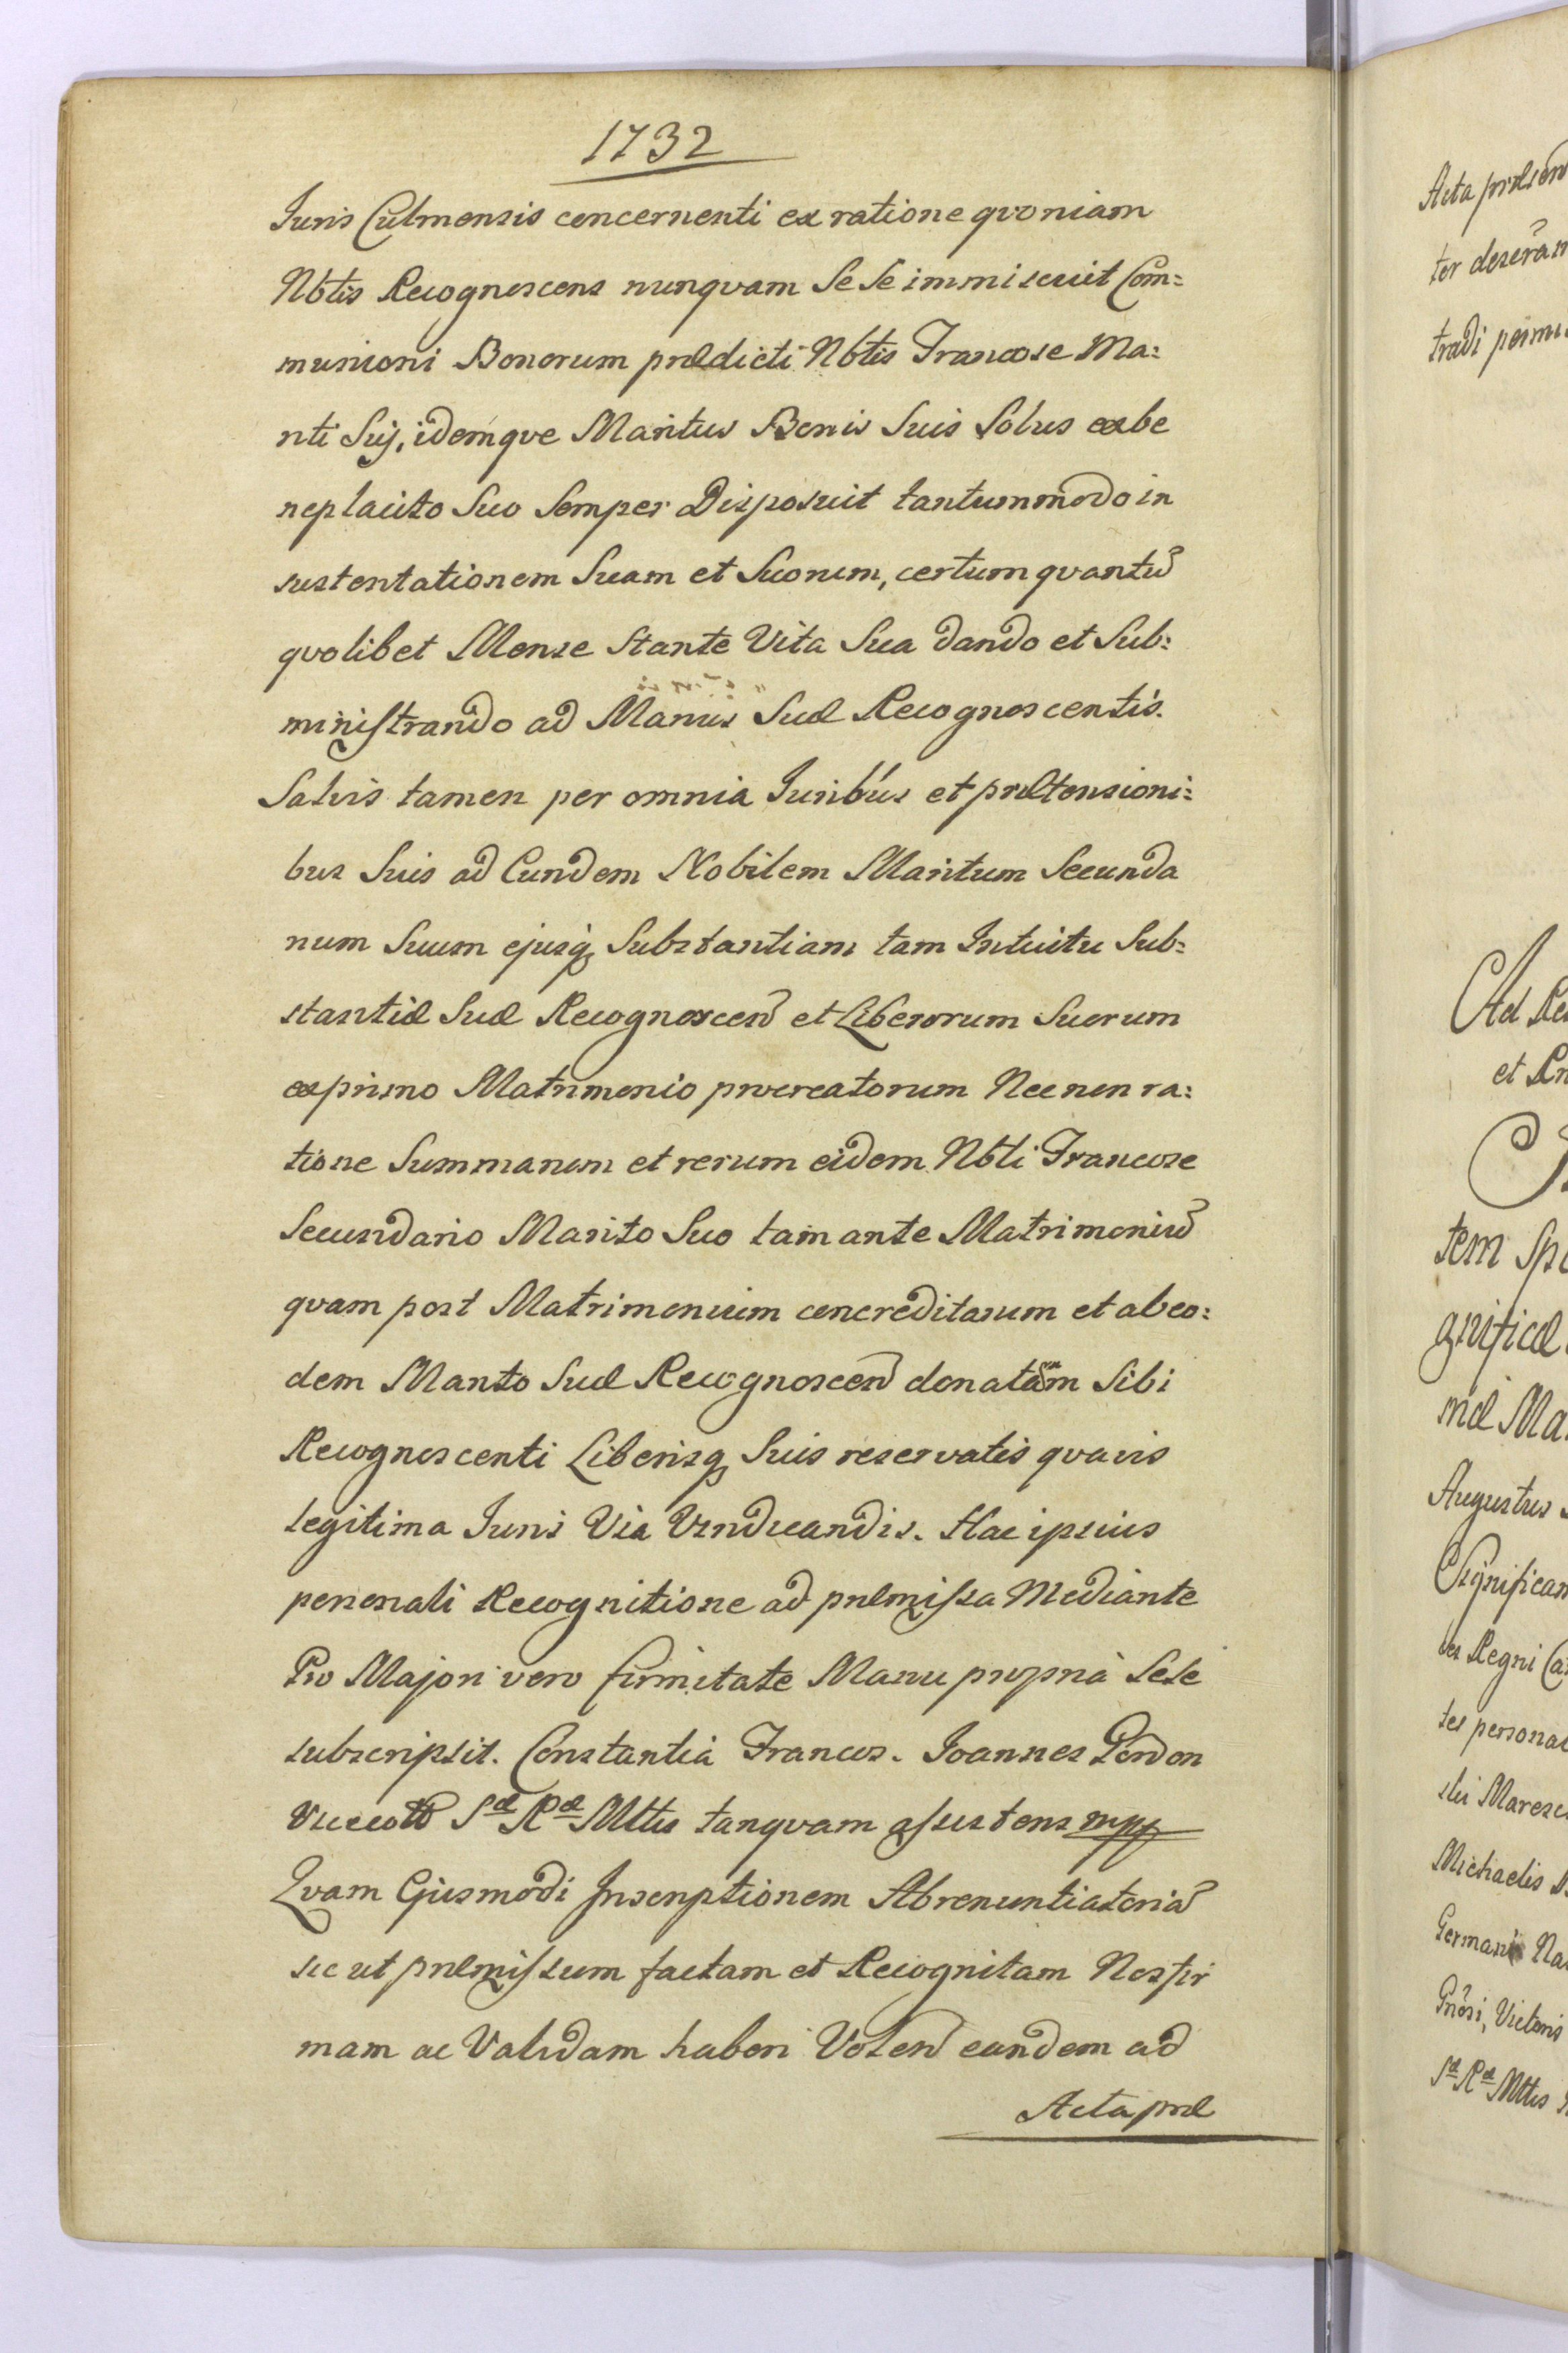 1732
Juris Culmensis concernenti ex ratione qvoniam
Nbtis Recognoscens nunqvam Se Se immiscuit Com=
munioni Bonorum prædicti Nbtis Francose Ma=
riti Suj, idemqve Maritus Bonis Suis Solus ex be
neplacito Suo Semper Disposuit tantummodo in
sustentationem Suam et Suorum, certum qvantũ
qvolibet Mense Stante Vita Sua dando et Sub=
ministrando ad Manus Suæ Recognoscentis.
Salvis tamen per omnia Juribus et prætensioni=
bus Suis ad Eundem Nobilem Maritum Secunda
rium Suum ejusq̃ Substantiam tam Intuitu Sub=
stantiæ Suæ Recognoscen̄ et Liberorum Suorum
ex primo Matrimonio procreatorum Necnon ra=
tione Summarum et rerum eidem Nbti Francose
Secundario Marito Suo tam ante Matrimoniũ
qvam post Matrimonium concreditarum et ab eo=
dem Marito Suæ Recognoscen̄ donatarum Sibi
Recognoscenti Liberisq̃ Suis reservatis qvavis
legitima Juris Via Vindicandis. Hac ipsius
personali Recognitione ad præmissa Mediante
Pro Majori vero firmitate Manu propria Sese
subscripsit. Constantia Francos. Joannes Pordon
S<sup>æ</sup> R<sup>æ</sup> Mttis tanqvam assistens mpp
Qvam Ejusmodi Inscriptionem Abrenuntiatoriã
sic ut præmissum factam et Recognitam Nos fir
mam ac Validam haberi Volen̄ eandem ad
Acta præ
Acta præsen
ter deserān
tradi permi
Ad Re
et Pr
tem Spe
gnificæ
mæ Ma
Augustus
Significam
ver Regni Ca
tes persona
slii Maresc
Michaelis
Germani Na
Gnõsi, Victoris
S<sup>æ</sup> R<sup>æ</sup> Mttis